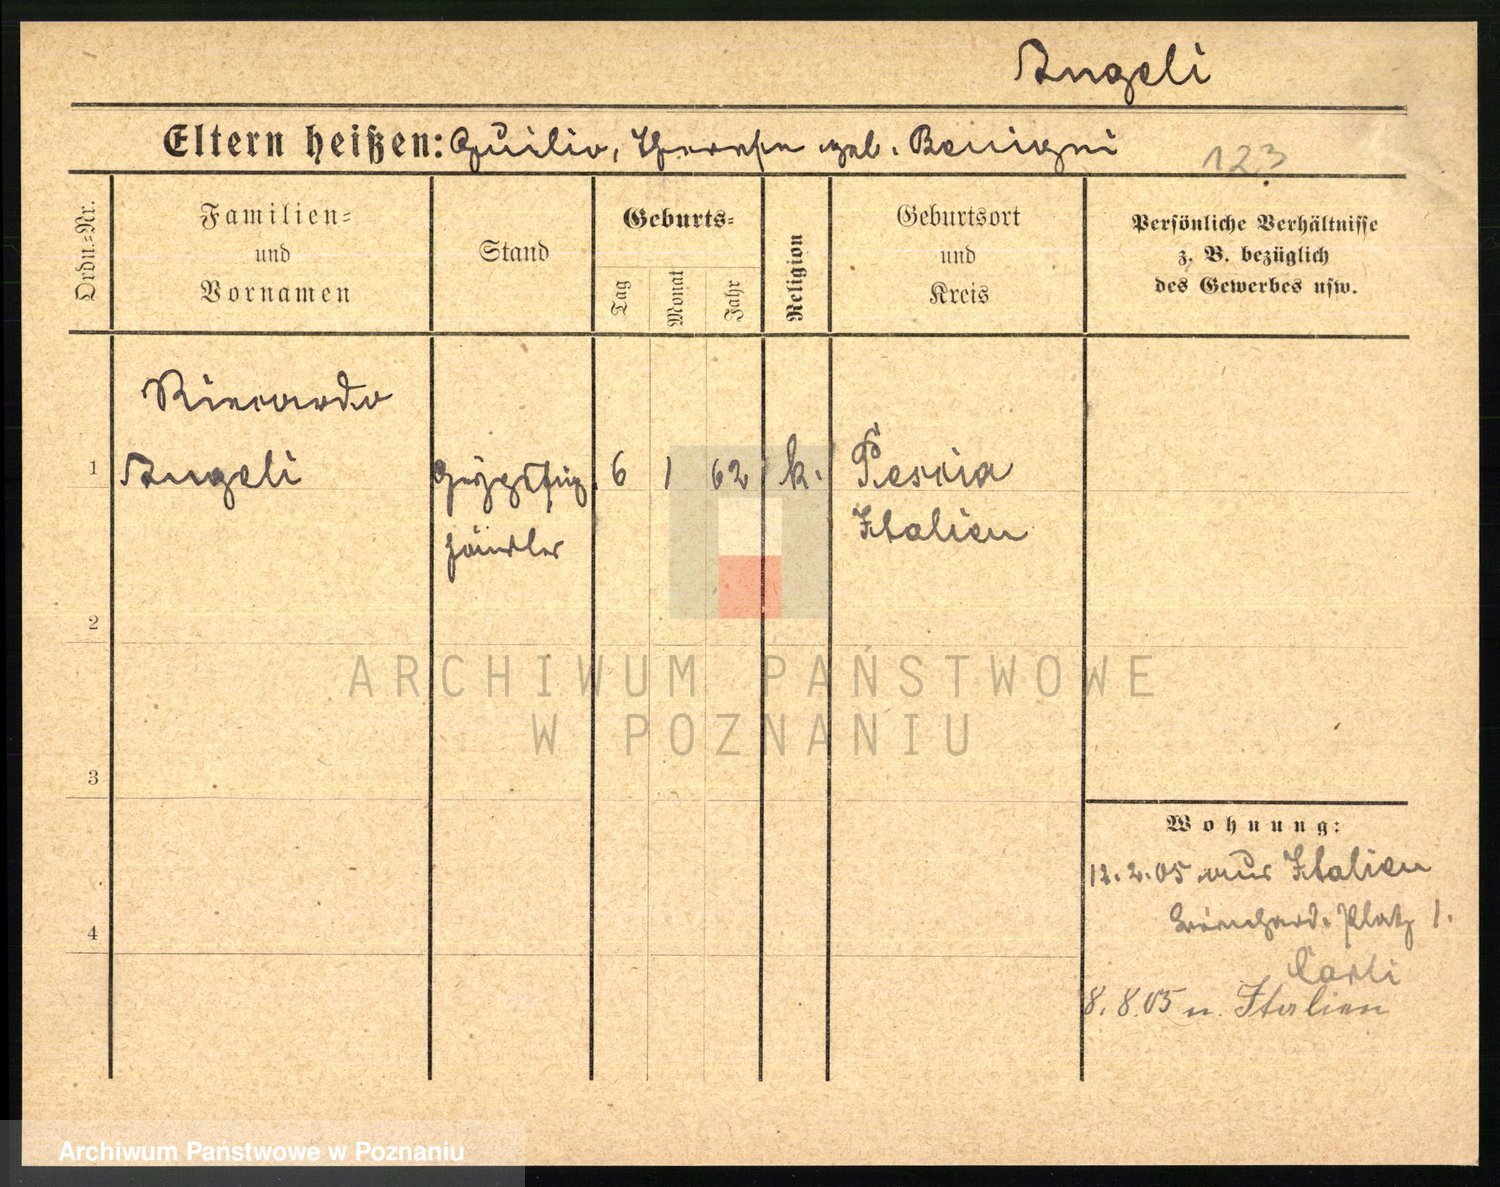 Angeli
Eltern heißen: Guilio, Therese geb. Benigni
123
Ordn.-Nr.
Familien-
und
Vornamen
Stand
Geburts-
Tag
Monat
Jahr
Religion
Geburtsort
und
Kreis
Persönliche Verhältnisse
z. B. bezüglich
des Gewerbes usw.
Riccardo
1 Angeli Gypsfig. 6 1 62 k. Pescia
händler Italien
2
ARCHIWUM PAŃSTWOWE
W POZNANIU
3
Wohnung:
12.2.05 aus Italien
Bernhard. Platz 1.
4
Carli
8.8.05 n. Italien
Archiwum Państwowe w Poznaniu